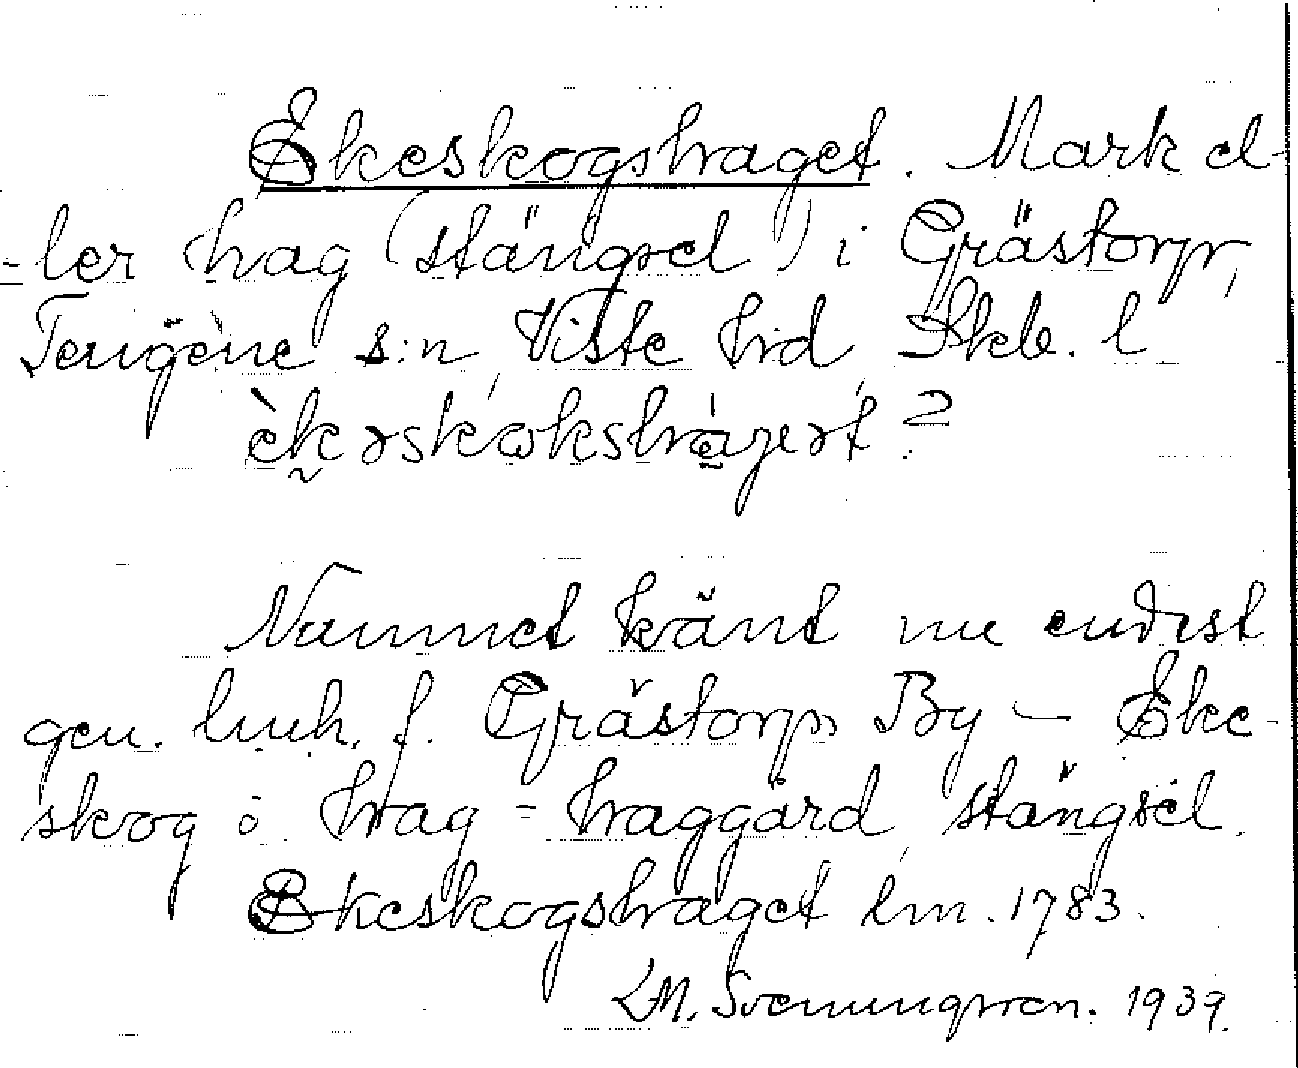 Ekeskogshaget. Mark el-
-ler hag (stängsel) i Grästorp,
Tengène s:n, Viste hrd, Skb. l
èkəskoksha̱gət ?
Namnet känt nu endast
gen. lmh. f. Grästorps By – Eke-
skog o. hag = haggärd, stängsel.
Ekeskogshaget lm. 1783.
LM. Svenungsson. 1939.